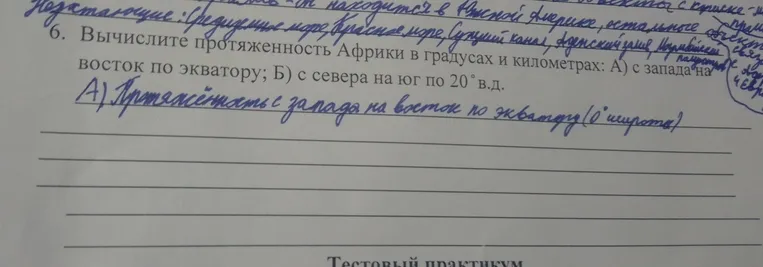 находится в Южной Америке, остальные
Недостающие: Средиземное море, Красное море, Суэцкий канал, Аденский залив,
6. Вычислите протяженность Африки в градусах и километрах: А) с запада на
восток по экватору; Б) с севера на юг по 20° в.д.
А) Протяжённость с запада на восток по экватору (0° широта)
Тестовый практикум